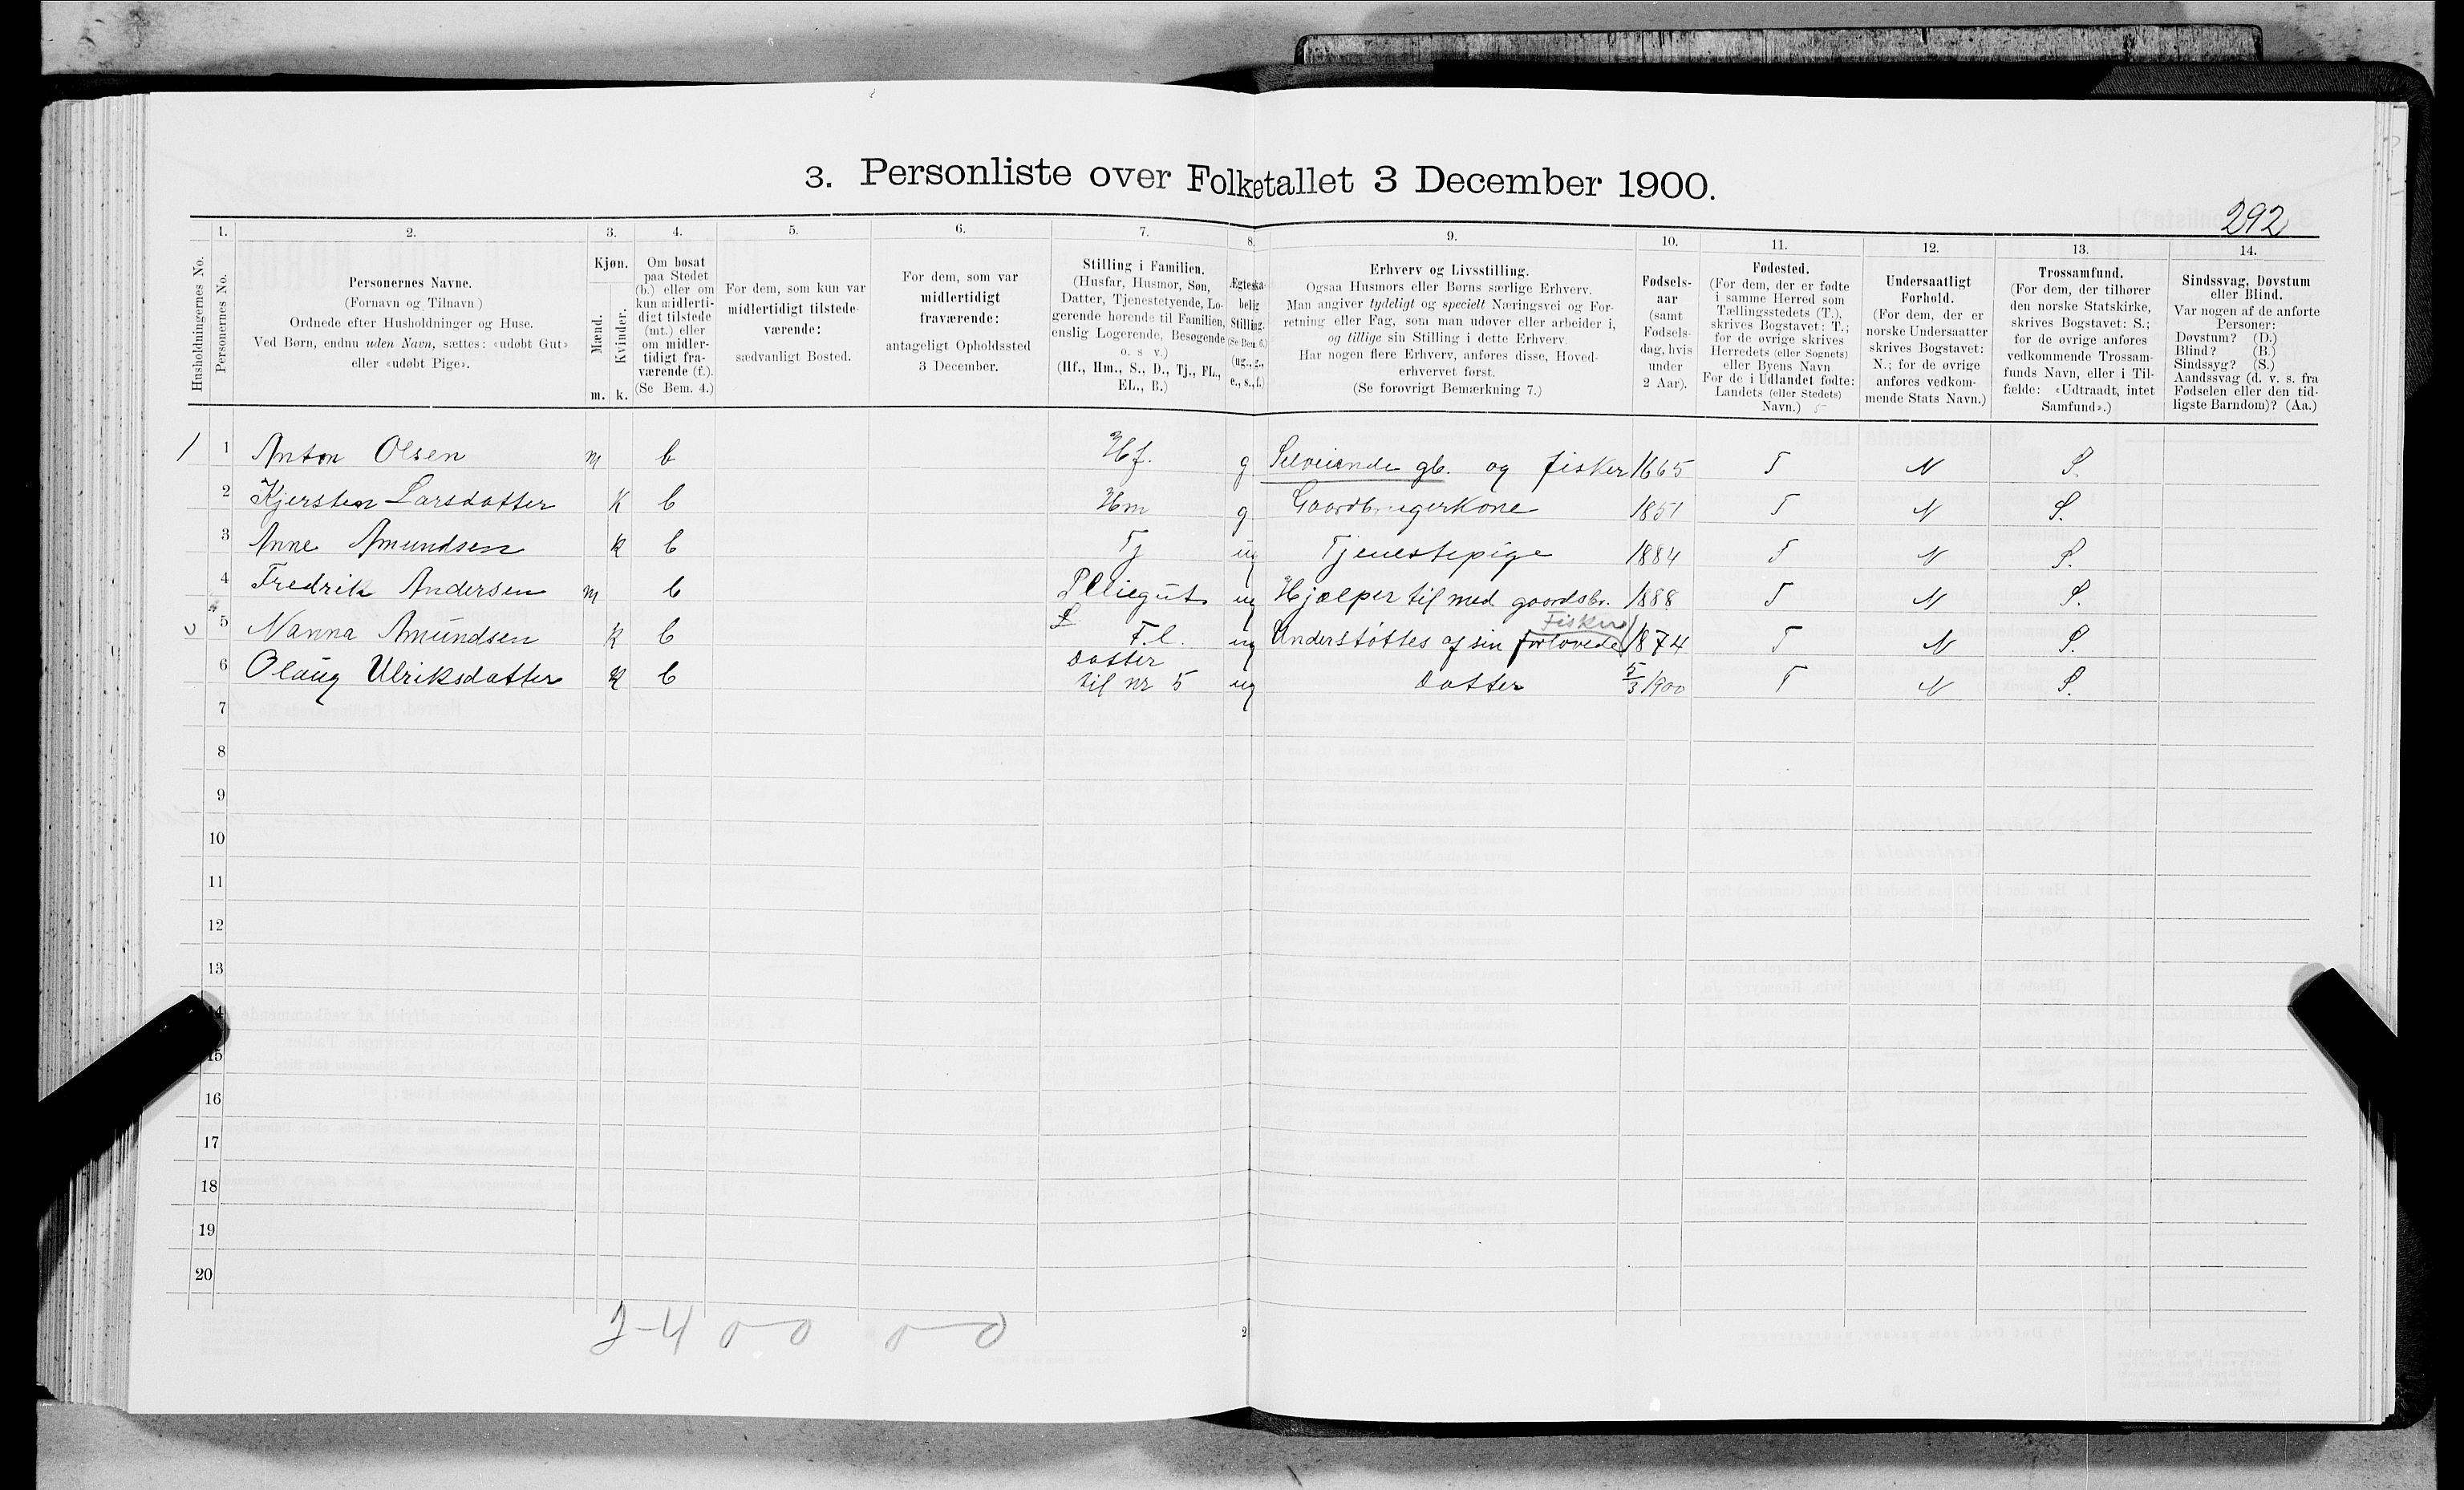 3. Personliste over Folketallet 3 December 1900.
292
Husholdningernes No.
1.
Personernes No.
2.
Personernes Navne.
(Fornavn og Tilnavn)
Ordnede efter Husholdninger og Huse.
Ved Børn, endnu uden Navn, sættes: «udøbt Gut»
eller «udøbt Pige».
3.
Kjøn.
Mænd.
Kvinder.
m. k.
4.
Om bosat
paa Stedet
(b.) eller om
kun midlerti-
digt tilstede
(mt.) eller
om midler-
tidigt fra-
værende (f.).
(Se Bem. 4.)
5.
For dem, som kun var
midlertidigt tilstede-
værende:
sædvanligt Bosted.
6.
For dem, som var
midlertidigt
fraværende:
antageligt Opholdssted
3 December.
7.
Stilling i Familien.
(Husfar, Husmor, Søn,
Datter, Tjenestetyende, Lo-
gerende hørende til Familien,
enslig Logerende, Besøgende
o. s v.)
(Hf., Hm., S., D., Tj., FL.,
EL., B.)
8.
Ægteska-
belig
Stilling.
(Se Bem. 6.)
(ug., g.,
e., s., f.)
9.
Erhverv og Livsstilling.
Ogsaa Husmors eller Børns særlige Erhverv.
Man angiver tydeligt og specielt Næringsvei og For-
retning eller Fag, som man udøver eller arbeider i,
og tillige sin Stilling i dette Erhverv.
Har nogen flere Erhverv, anføres disse, Hoved-
erhvervet først.
(Se forøvrigt Bemærkning 7.)
10.
Fødsels-
aar
(samt
Fødsels-
dag, hvis
under
2 Aar).
11.
Fødested.
(For dem, der er fødte
i samme Herred som
Tællingsstedets (T.),
skrives Bogstavet: T.;
for de øvrige skrives
Herredets (eller Sognets)
eller Byens Navn
For de i Udlandet fødte:
Landets (eller Stedets)
Navn.)
12.
Undersaatligt
Forhold.
(For dem, der er
norske Undersaatter
skrives Bogstavet:
N.; for de øvrige
anføres vedkom-
mende Stats Navn.)
13.
Trossamfund.
(For dem, der tilhører
den norske Statskirke,
skrives Bogstavet: S.;
for de øvrige anføres
vedkommende Trossam-
funds Navn, eller i Til-
fælde: «Udtraadt, intet
Samfund».)
14.
Sindssvag, Døvstum
eller Blind.
Var nogen af de anførte
Personer:
Døvstum? (D.)
Blind? (B.)
Sindssyg? (S.)
Aandssvag (d. v. s. fra
Fødselen eller den tid-
ligste Barndom)? (Aa.)
1 1 Anton Olsen m b Hf. g Selveiende gb. og fisker 1665 T N S.
2 Kjersten Larsdatter K b Hm g Gaardbrugerkone 1851 T N S.
3 Anne Amundsen K b Tj ug Tjenestepige 1884 T N S.
4 Fredrik Andersen m b Pleiegut ug Hjælper til med gaardsbr. 1888 T N S.
Fisker
5 Nanna Amundsen K b F.l. ug Understøttes af sin forlovede 1874 T N S.
datter
6 Olaug Ulriksdatter K b til nr 5 ug datter 5/3 1900 T N S.
7
8
9
10
11
12
13
14
15
16
17
18
19
20
2-4 0-0 0-0
2